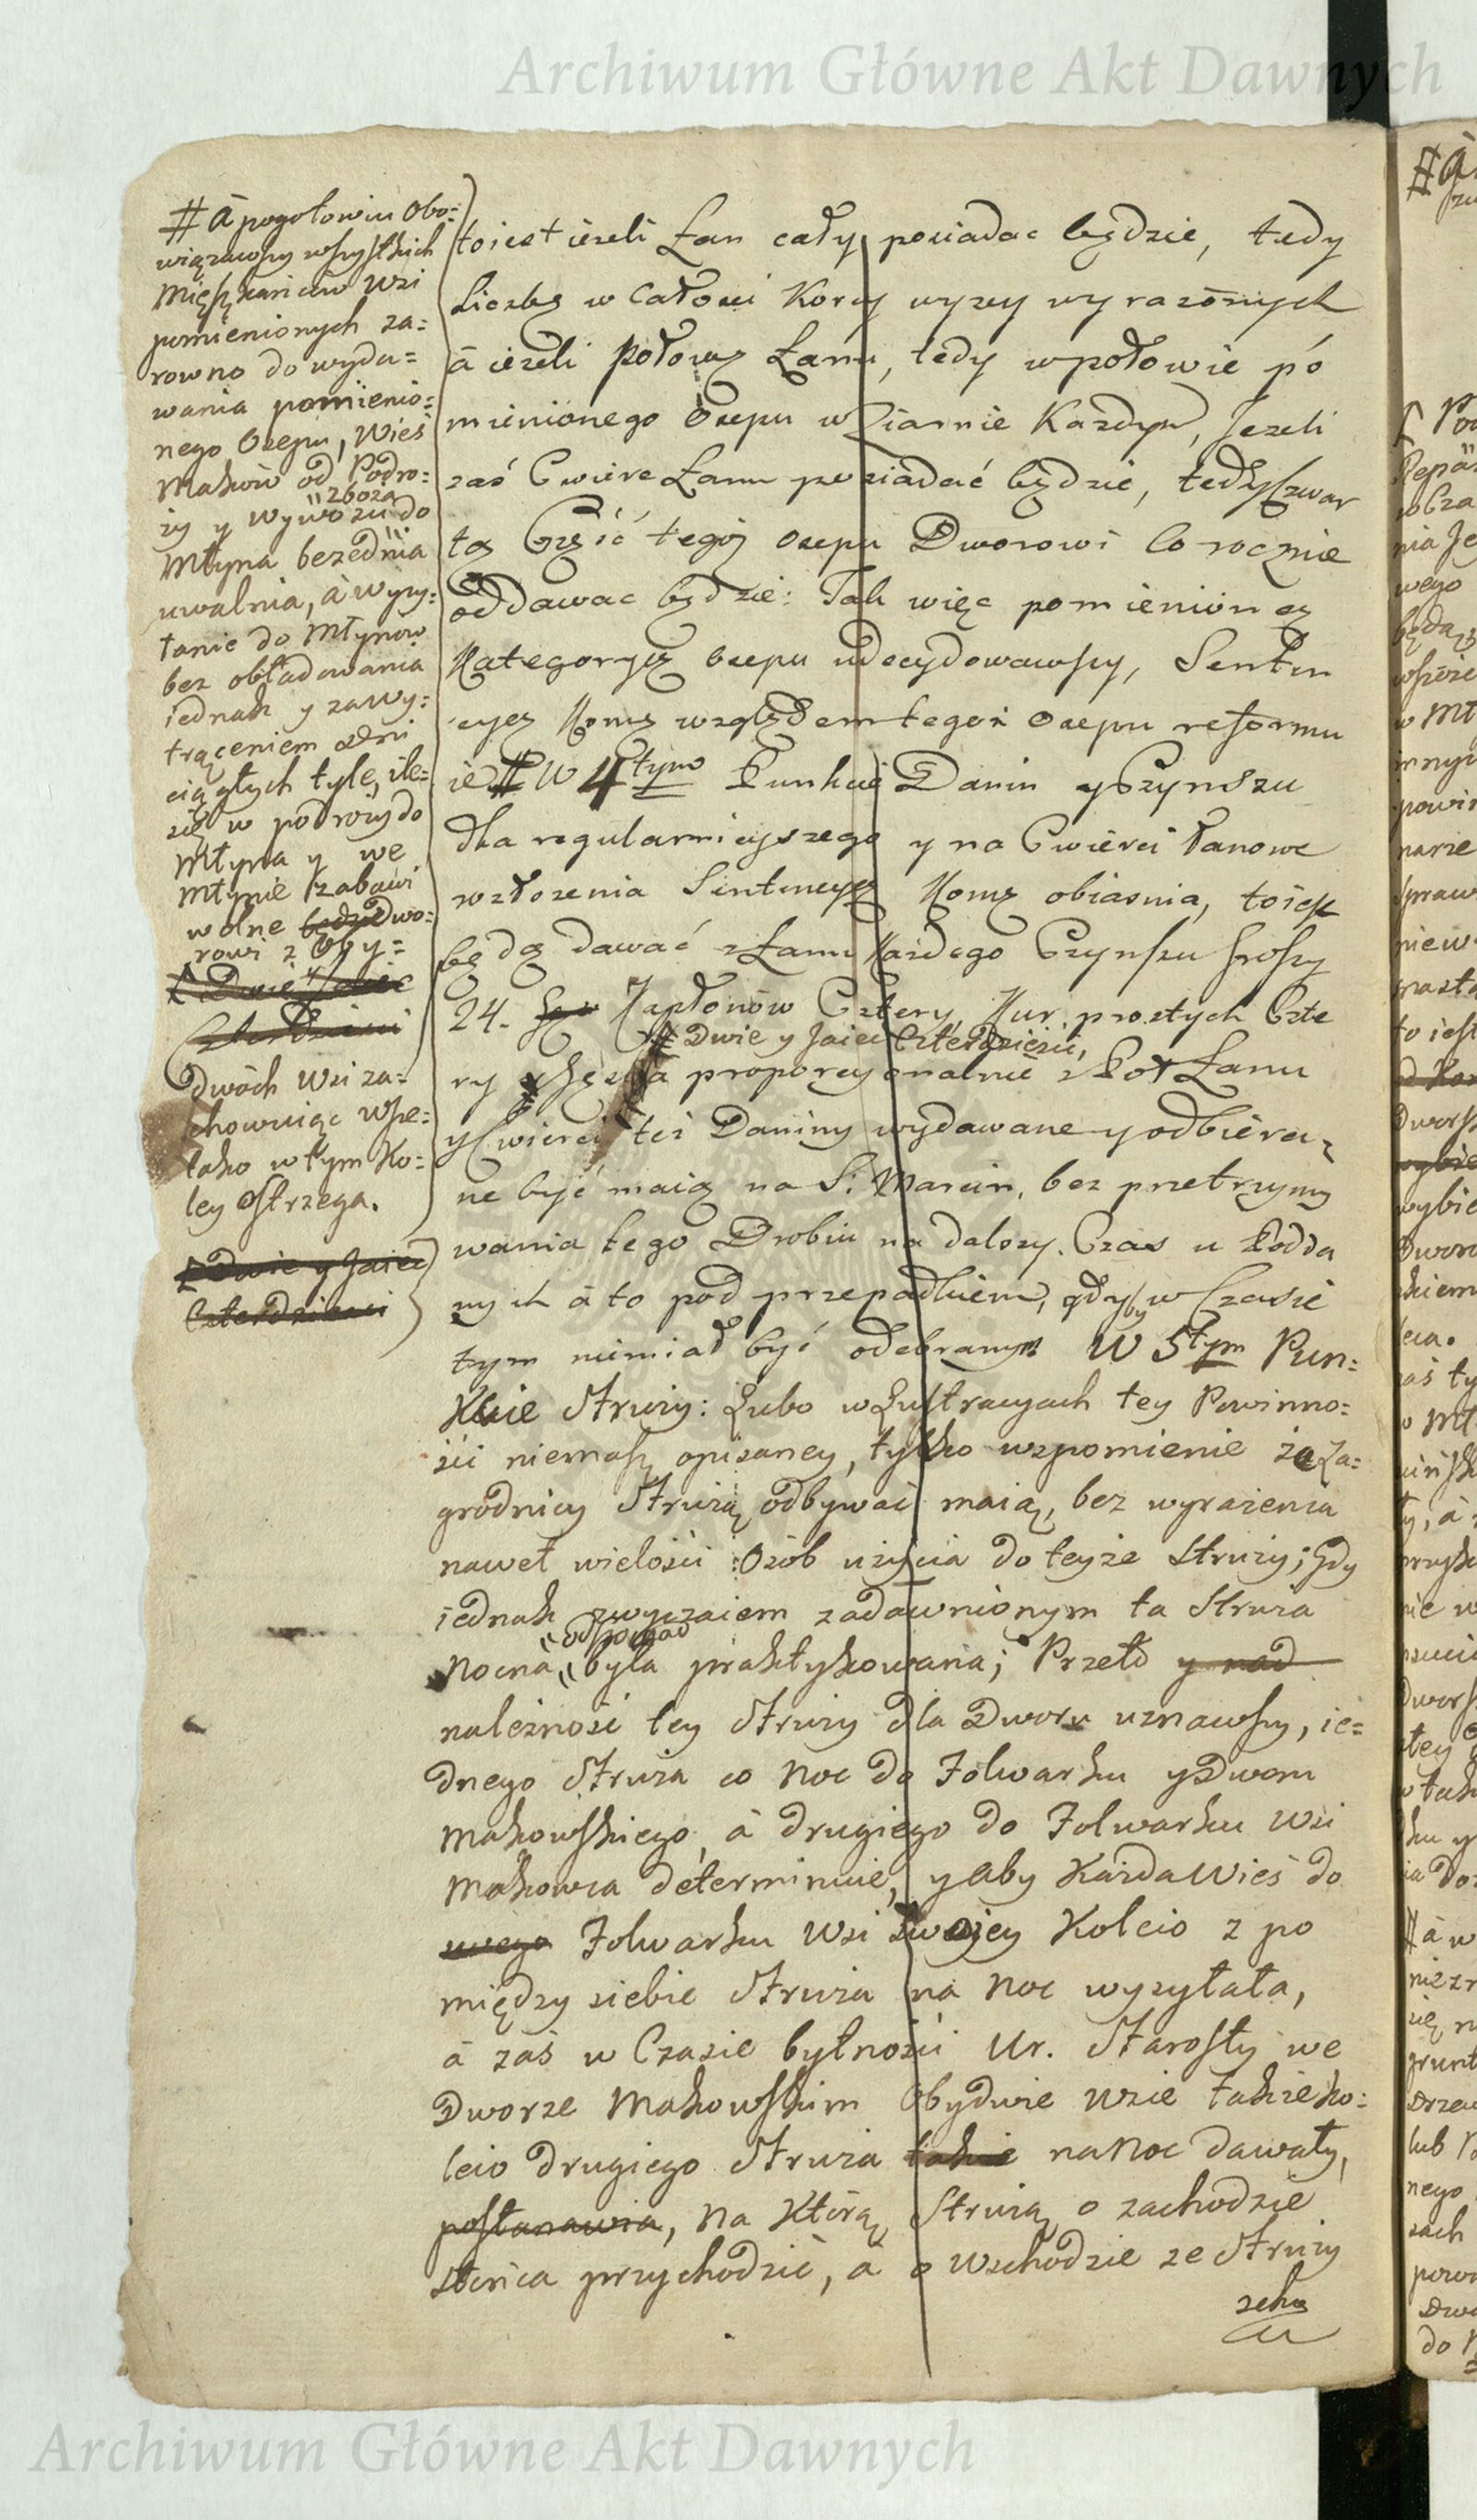 Archiwum Główne Akt Dawnych
# à pogotowiu obo=
wiązawszy wszystkich
Mięszkańców wsi
pomienionych za=
rowno do wyda=
wania pomienio=
nego Osepu, wieś
Maków od Podro=
ży y wywozu do
zboża
Młyna bezednia
uwalnia, à wysy=
łanie do Młynow
bez obładowania
iednak y zawy=
trąceniem dni
ciągłych tyle, ile=
się w podróży do
Młyna y we
Młynie zabawi
wolne będzie Dwo=
rowi z oby=
dwóch wsi za=
chowuiąc wsze=
lako w tym Ko=
ley ostrzega.
Dwie y Jaiec
Czterdzieści
toiest ieżeli Łan cały posiadac będzie, tedy
Liczbę w całości Korcy wyzey wyrazonych
à ieżeli Połowę Łanu, tedy w połowie po
mienionego Osepu w Ziarnie Kazdym, Jezeli
zaś Cwierc Łanu posiadać będzie, tedy Czwar
tą Część tegoż osepu Dworowi Corocznie
oddawac będzie: Tak więc pomienioną
Kategoryą osepu udecydowawszy, Senten
cyą Komę względem tegoż Osepu reformu
ie # W 4tym Punkcie Danin y Czynszu
dla regularnieyszego y na Cwierci Łanowe
rozłozenia Sentencyą Komę obiasnia, toiest
będą dawać z Łanu Kazdego Czynszu groszy
24. Kapłonów Cztery, Kur prostych Czte
# Dwie y Jaiec Czterdzieści,
ry proporcyonalnie z Poł Łanu
y Cwierci też Daniny wydawane y odbiera
ne być maią na S: Marcin, bez przetrzymy
wania tego Drobiu na dalszy Czas u Podda
nych à to pod przepadkiem, gdyby w Czasie
tym niemiał być odebranym. W 5tym Pun=
Kcie Struzy: Lubo w Lustracyach tey Powinno=
ści niemasz opisaney, tylko wspomienie że Za=
grodnicy Strużą odbywać maią, bez wyrażenia
nawet wielości Osób użycia do teyże Struży; Gdy
iednak zwyczaiem zadawnionym ta Struża
odponad
Nocna była praktykowana; Przeto y nad
należność tey Struży dla Dworu uznawszy, ie=
dnego Struża co Noc do Folwarku y Dworu
Makowskiego, à drugiego do Folwarku wsi
Makowca determinuie, y aby Każda Wieś do
swego Folwarku Wsi swojey Koleio z po
między siebie Struża na Noc wysyłała,
à zaś w Czasie bytności Ur. Starosty we
Dworze Makowskim Obydwie wsie także ko=
leio drugiego Struża takie na Noc dawały,
postanawia, na Którą Strużą o zachodzie
słońca przychodzić, à o wschodzie ze Struży
Archiwum Główne Akt Dawnych